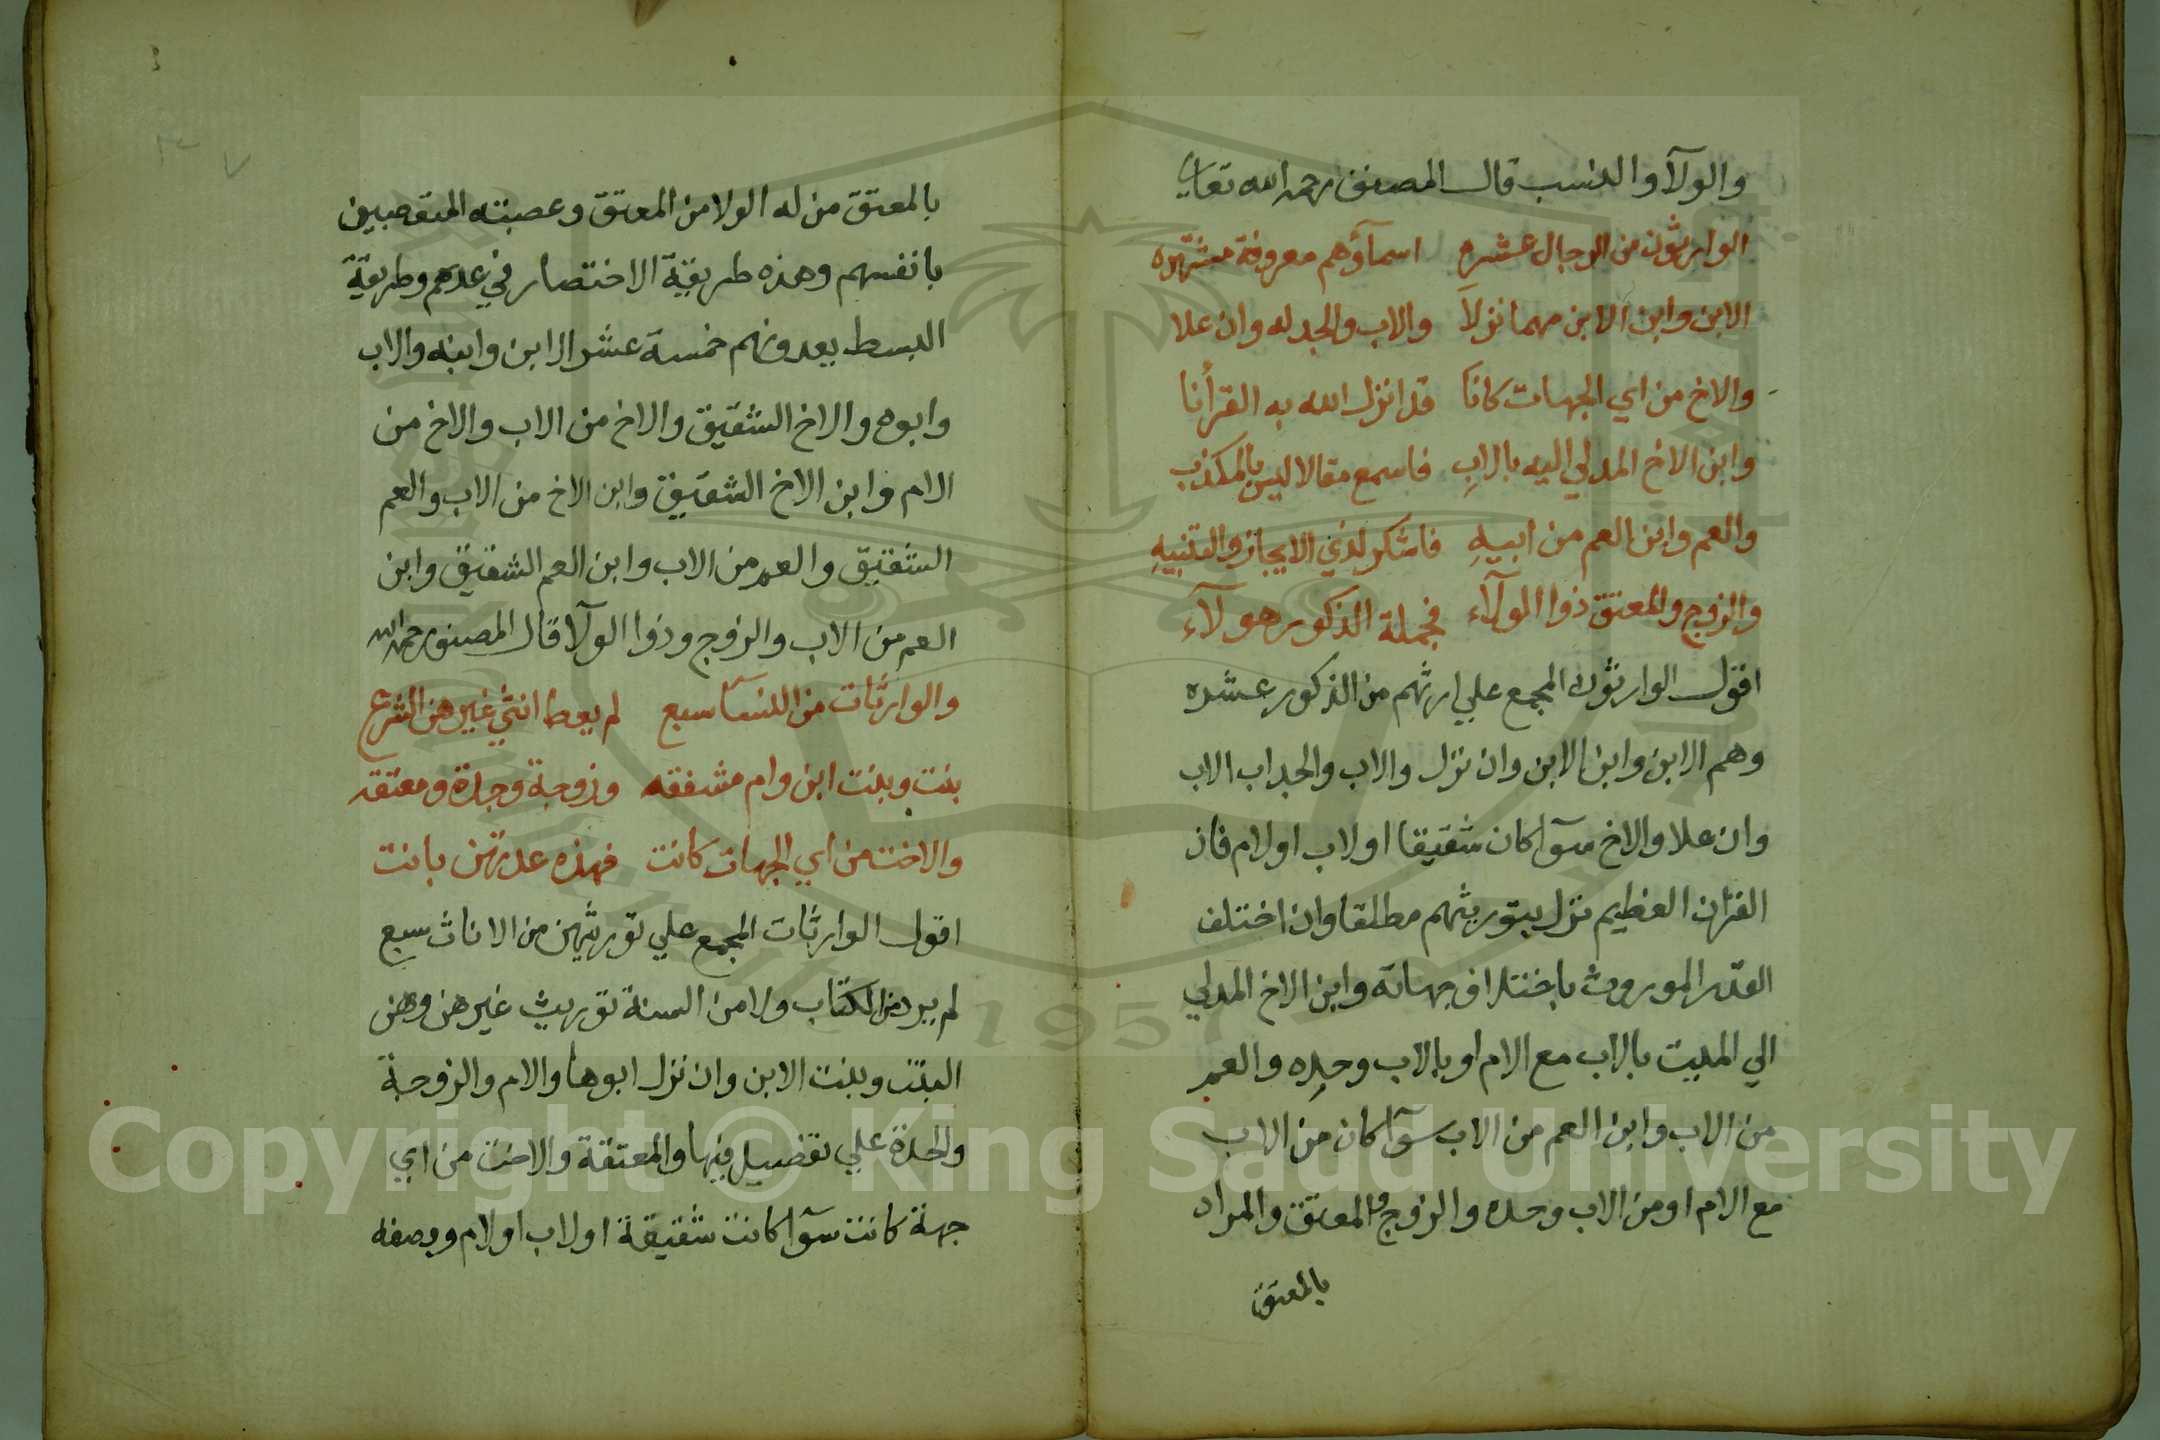 والولآ والنسب قال المصنف رحمه الله تعالي
الوارثون من الرجال عشره اسمآؤهم معروفة مشتهره
الابن وابن الابن مهما نزلا والاب والجد له وان علا
والاخ من اي الجهات كانا قد انزل الله به القرأنا
وابن الاخ المدلي اليه بالاب فاسمع مقالا ليس بالمكذب
والعم وابن العم من ابيه فاشكر لذي الايجاز والتنبيه
والزوج والمعتق ذوا الولآء فجملة الذكور هولآء
اقول الوارثون المجمع علي ارثهم من الذكور عشره
وهم الابن وابن الابن وان نزل والاب والجد اب الاب
وان علا والاخ سوآ كان شقيقا او لاب او لام فان
القرٔان العظيم نزل بتوريثهم مطلقا وان اختلف
القدر الموروث باختلاف جهاته وابن الاخ المدلي
الي الميت بالاب مع الام او بالاب وحده والعم
من الاب وابن العم من الاب سوآ كان من الاب
مع الام او من الاب وحده والزوج والمعتق والمراد
بالمعتق
بالمعتق من له الولا من المعتق وعصبته المتعصبين
بانفسهم وهذه طريقة الاختصار في عدهم وطريقة
البسط يعدونهم خمسة عشر الابن وابنه والاب
وابوه والاخ الشقيق والاخ من الاب والاخ من
الام وابن الاخ الشقيق وابن الاخ من الاب والعم
الشقيق والعم من الاب وابن العم الشقيق وابن
العم من الاب والزوج وذوا الولآ قال المصنف رحمه الله
والوارثات من النسآ سبع لم يعط انثي غيرهن الشرع
بنت وبنت ابن وام مشفقه وزوجة وجدة ومعتقه
والاخت من اي الجهات كانت فهذه عدتهن بانت
اقول الوارثات المجمع علي توريثهن من الاناث سبع
لم يرد من الكتاب ولا من السنة توريث غيرهن وهن
البنت وبنت الابن وان نزل ابوها والام والزوجة
والجدة علي تفصيل فيها والمعتقة والاخت من اي
جهة كانت سوآ كانت شقيقة او لاب او لام ووصفه
1957
Copyright © King Saud University